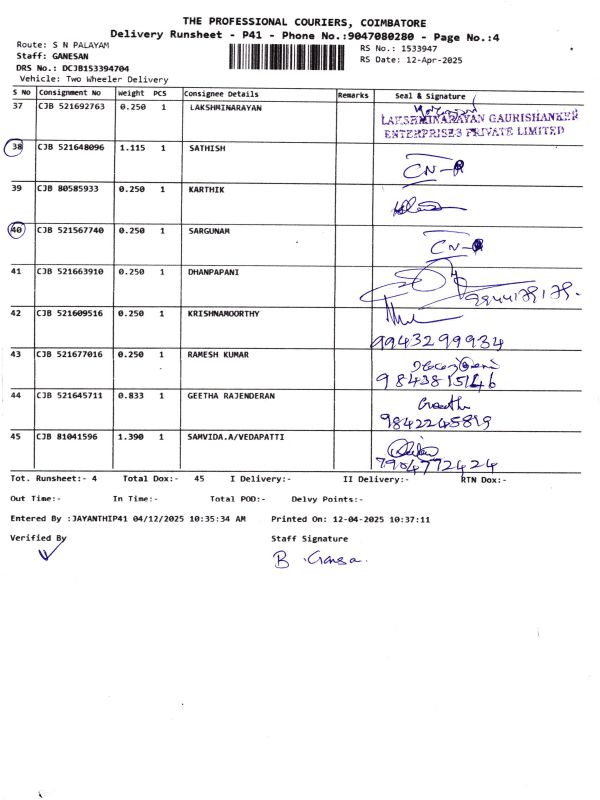 THE PROFESSIONAL COURIERS, COIMBATORE
Delivery Runsheet - P41 - Phone No.:9047080280 - Page No.:4
Route: S N PALAYAM
RS No.: 1533947
Staff: GANESAN
RS Date: 12-Apr-2025
DRS No.: DCJB153394704
Vehicle: Two Wheeler Delivery
S No Consignment No Weight PCS Consignee Details Remarks Seal & Signature
37 CJB 521692763 0.250 1 LAKSHMINARAYAN
LAKSHMINARAYAN GAURISHANKER
ENTERPRISES PRIVATE LIMITED
38 CJB 521648096 1.115 1 SATHISH
CN-R
39 CJB 80585933 0.250 1 KARTHIK
40 CJB 521567740 0.250 1 SARGUNAM
CN-R
41 CJB 521663910 0.250 1 DHANPAPANI
9944179179.
42 CJB 521609516 0.250 1 KRISHNAMOORTHY
9943299934
43 CJB 521677016 0.250 1 RAMESH KUMAR
9843815146
44 CJB 521645711 0.833 1 GEETHA RAJENDERAN
Geetha
9842245819
45 CJB 81041596 1.390 1 SAMVIDA.A/VEDAPATTI
7904772424
Tot. Runsheet:- 4 Total Dox:- 45 I Delivery:- II Delivery:- RTN Dox:-
Out Time:- In Time:- Total POD:- Delvy Points:-
Entered By :JAYANTHIP41 04/12/2025 10:35:34 AM Printed On: 12-04-2025 10:37:11
Verified By Staff Signature
B. Gansa.